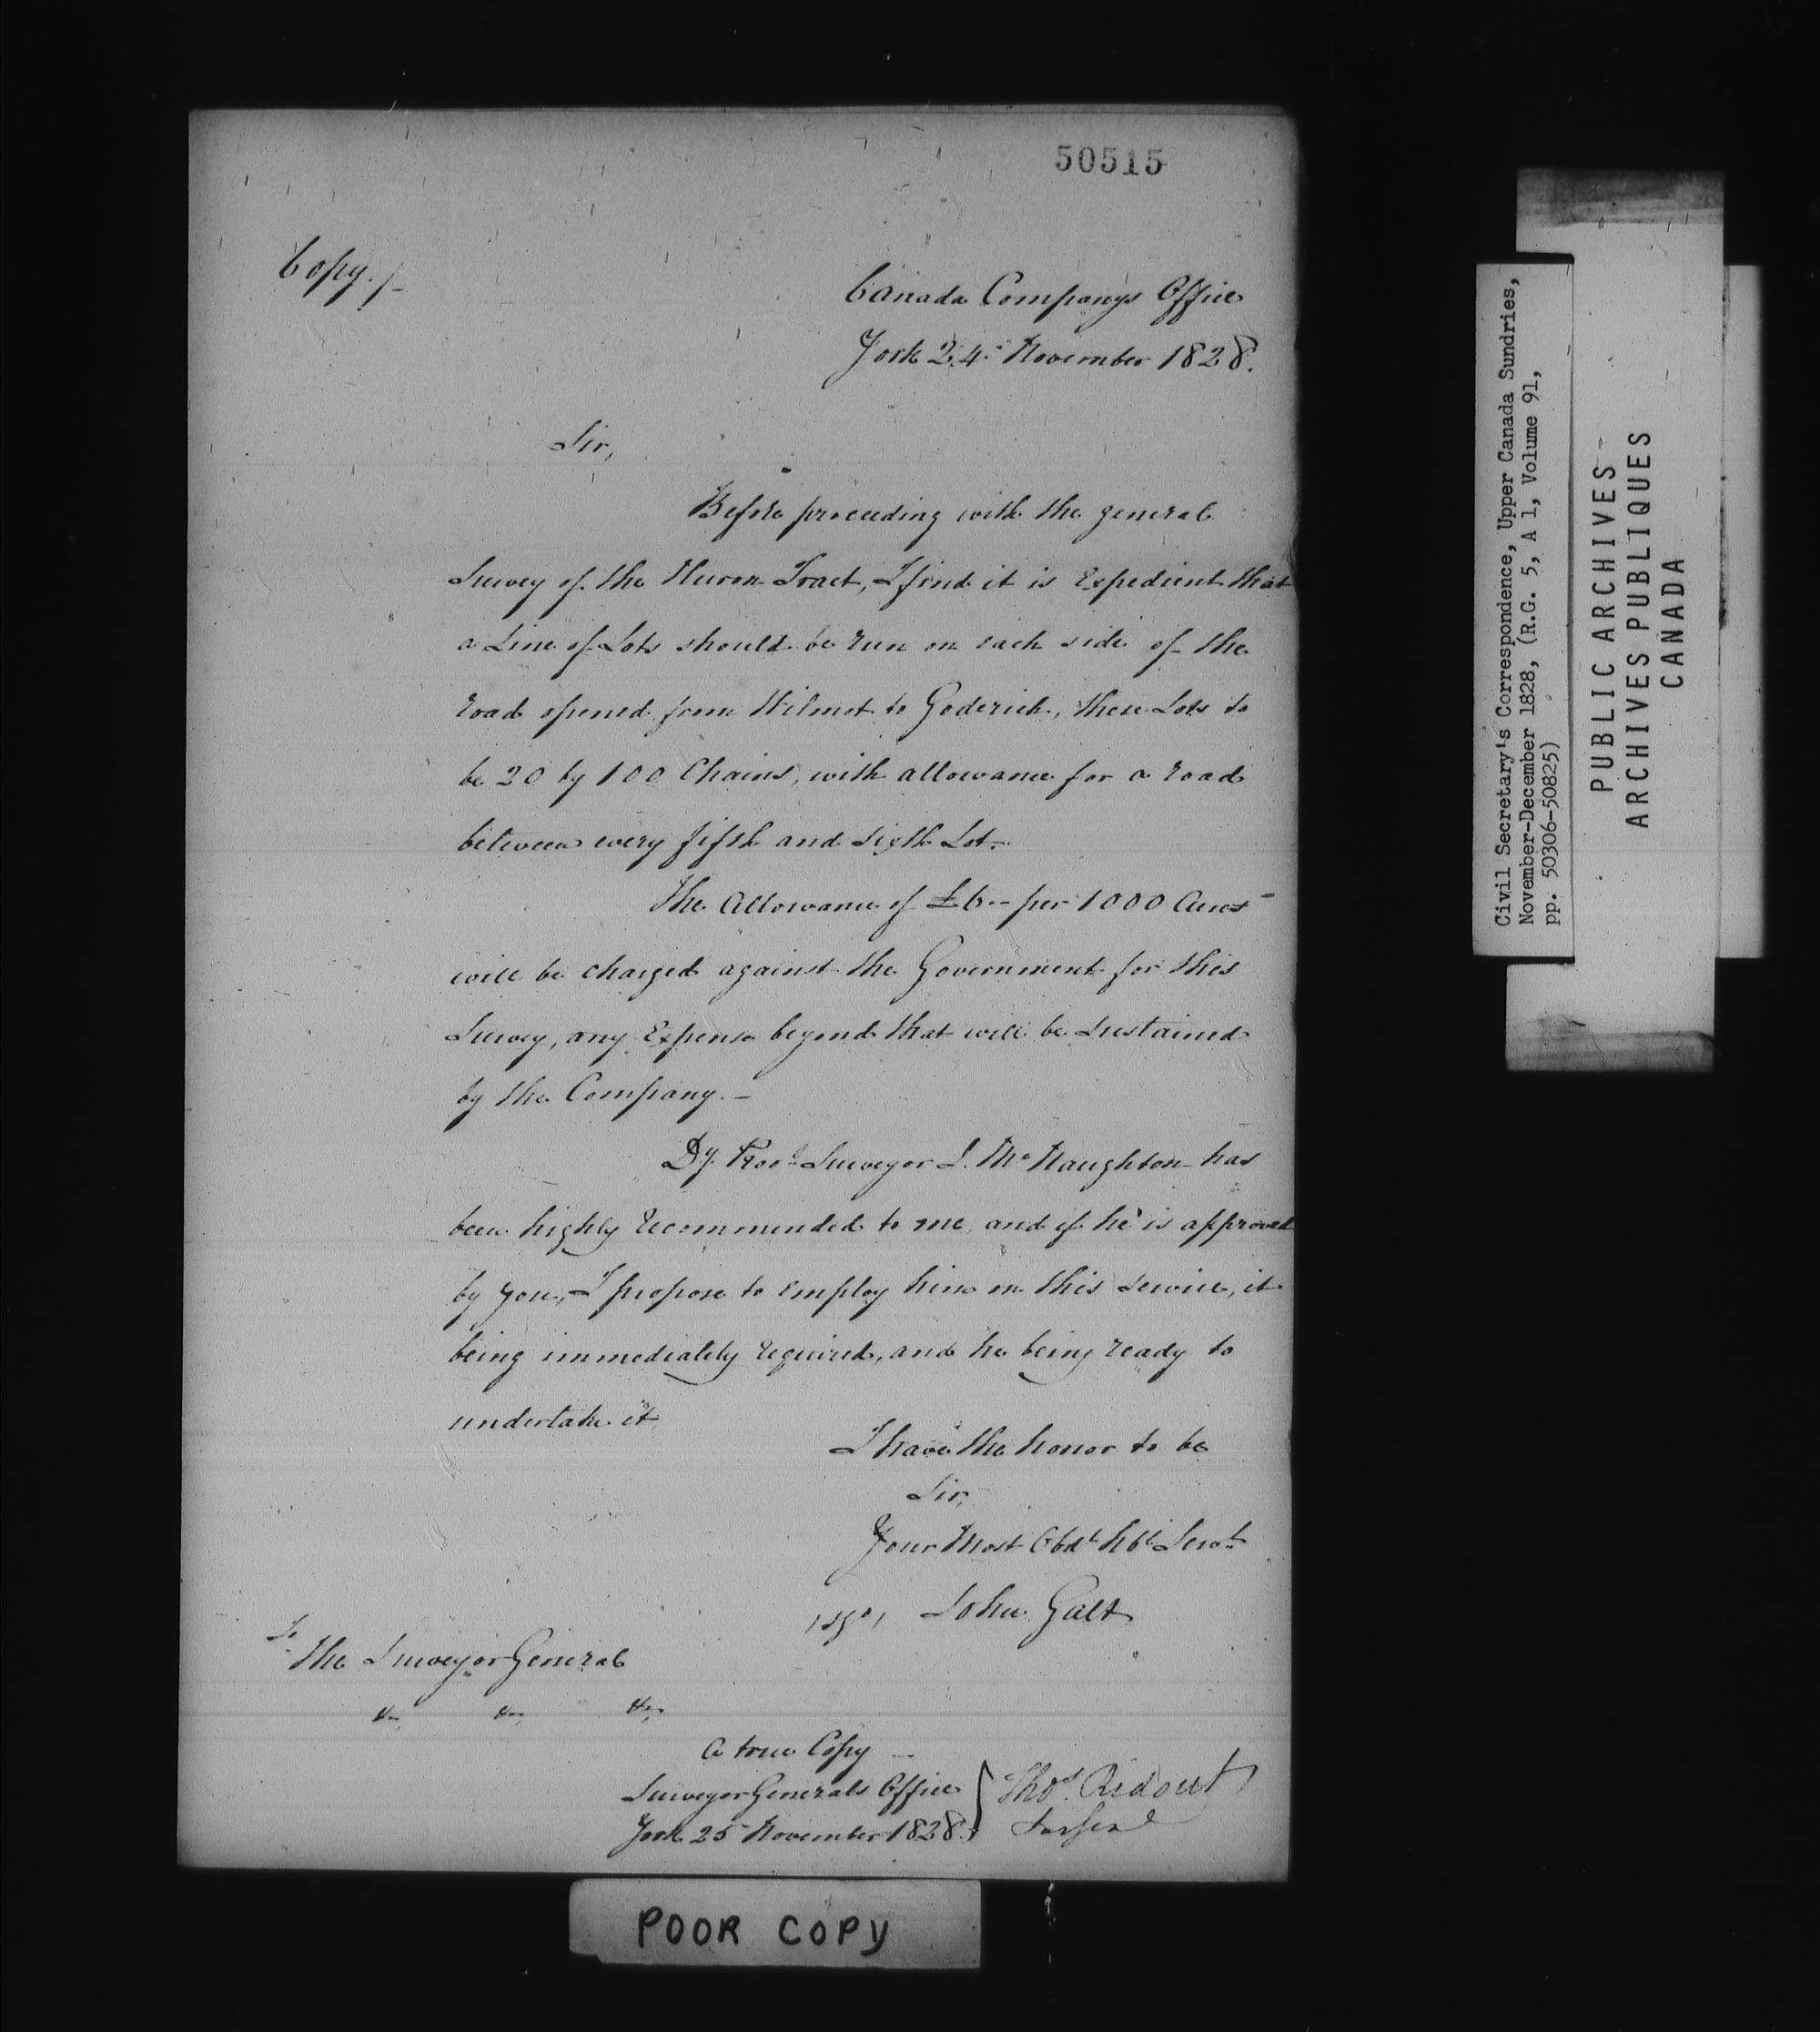 50515
Copy./-
Canada Companys Office
York 24th November 1828.
Sir,
Before proceeding with the general
Survey of the Huron Tract, I find it is Expedient that
a Line of Lots should be run on each side of the
road opened from Wilmot to Goderich, these Lots to
be 20 by 100 Chains, with allowance for a road
between every fifth and sixth Lot.-
The Allowance of £6-- per 1000 Acres
will be charged against the Government for this
Survey, any Expense beyond that will be sustained
by the Company.-
Dy. Provl Surveyor J. McNaughton has
been highly recommended to me, and if he is approved
by you, I propose to Employ him on this service, it
being immediately required, and he being ready to
undertake it.
I have the honor to be
Sir,
Your Most Obdt hble Servt
(sgd) John Galt
To
The Surveyor General
&c, &c, &c,
a true Copy -
Surveyor Generals Office
York 25 November 1828.
Thos. Ridout
Sur Genl
POOR COPY
Civil Secretary's Correspondence, Upper Canada Sundries,
November-December 1828, (R.G. 5, A 1, Volume 91,
pp. 50306-50825)
PUBLIC ARCHIVES
ARCHIVES PUBLIQUES
CANADA